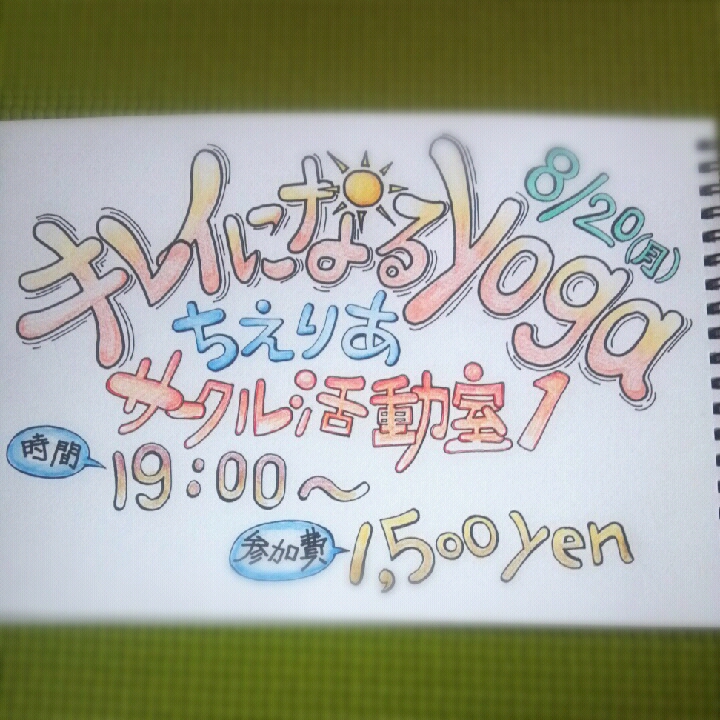 8/20(月)
キレイになるyoga
ちえりあ
サークル活動室1
時間 19:00〜
参加費 1,500yen